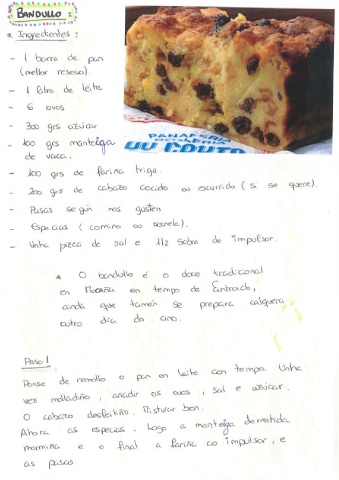 BANDULLO
* Ingredientes:
- 1 barra de pan
(mellor reseso).
- 1 litro de leite
- 6 ovos
- 300 grs azúcar
- 100 grs manteiga
de vaca.
- 400 grs de fariña triga.
- 200 grs de cabazo cocido ou escurrido (si se quere).
- Pasas según nos gusten
- Especias (comino ou canela).
- Unha pizca de sal e 1/2 sobre de impulsor.
PANADERÍA
OU COUTO
* O bandullo é o doce tradicional
en Moaña en tempo de Entroido,
ainda que tamén se prepara calquera
outro día do ano.
Paso 1
Ponse de remollo o pan en leite con tempo. Unha
vez molladiño, añadir os ovos, sal e azúcar.
O cabazo desfeitiño. Misturar ben.
Ahora as especias. Logo a manteiga derretida
morniña e o final a fariña co impulsor, e
as pasas.